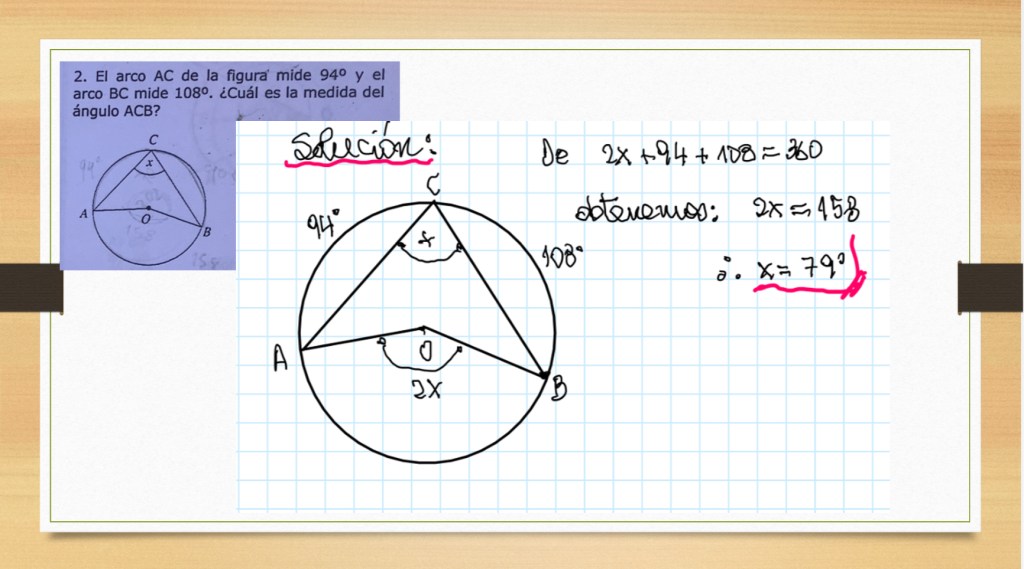 2. El arco AC de la figura mide 94º y el
arco BC mide 108º. ¿Cuál es la medida del
ángulo ACB?
C
x
A
O
B
94º
Solución:
De 2x+94+108=360
obtenemos: 2x=158
∴ x=79°
C
94°
x
108°
A
O
2x
B